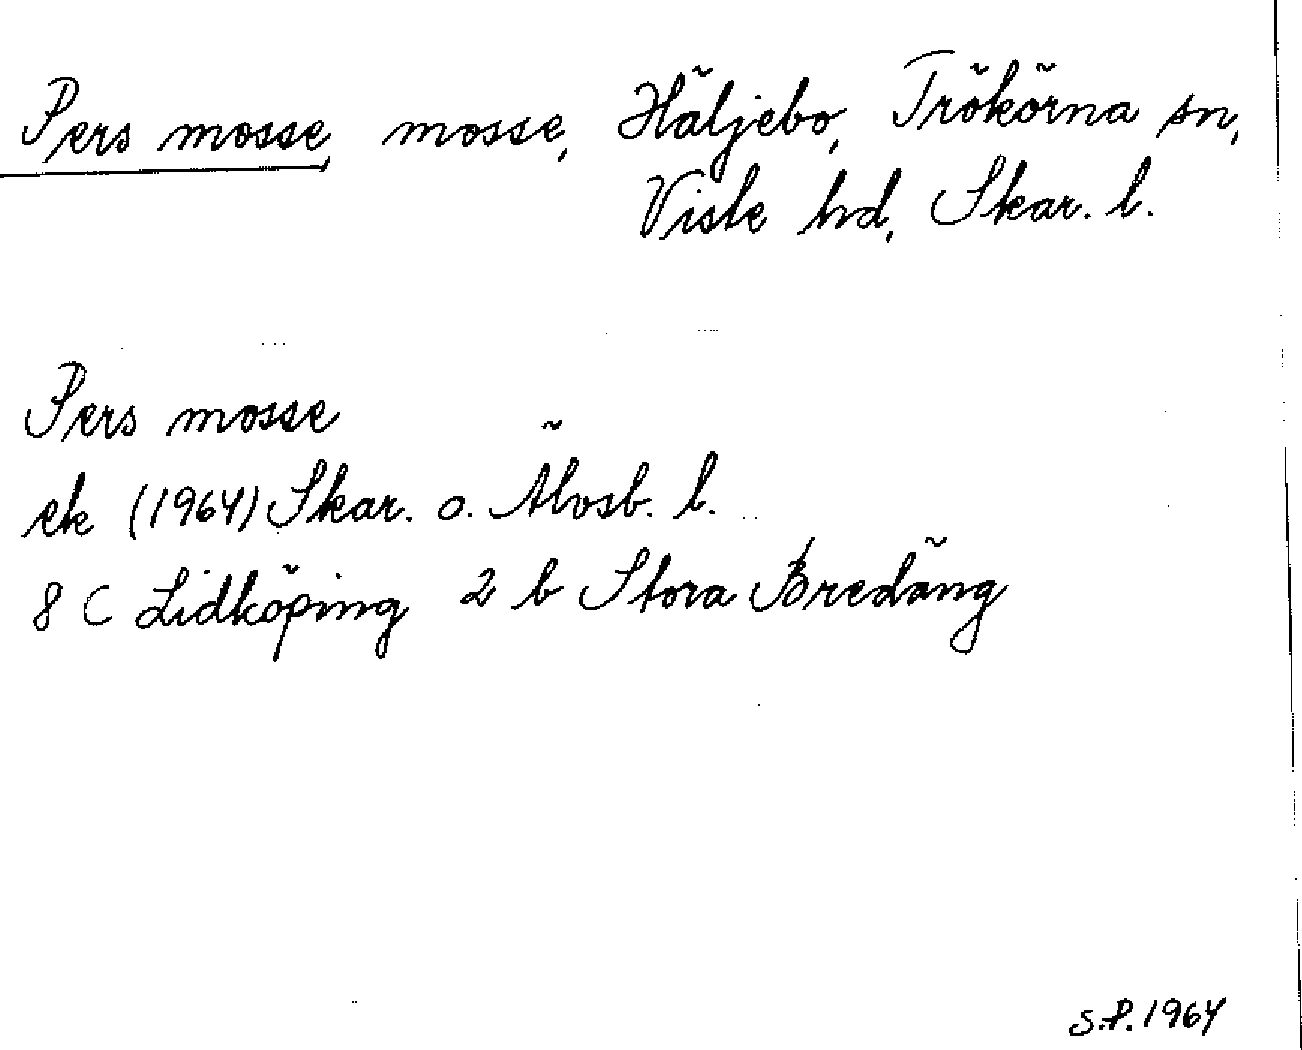 Pers mosse, mosse, Häljebo, Trökörna sn,
Viste hd, Skar. l.
Pers mosse
ek (1964) Skar. o. Älvsb. l.
8 C Lidköping 2 b Stora Bredäng
S.P. 1964